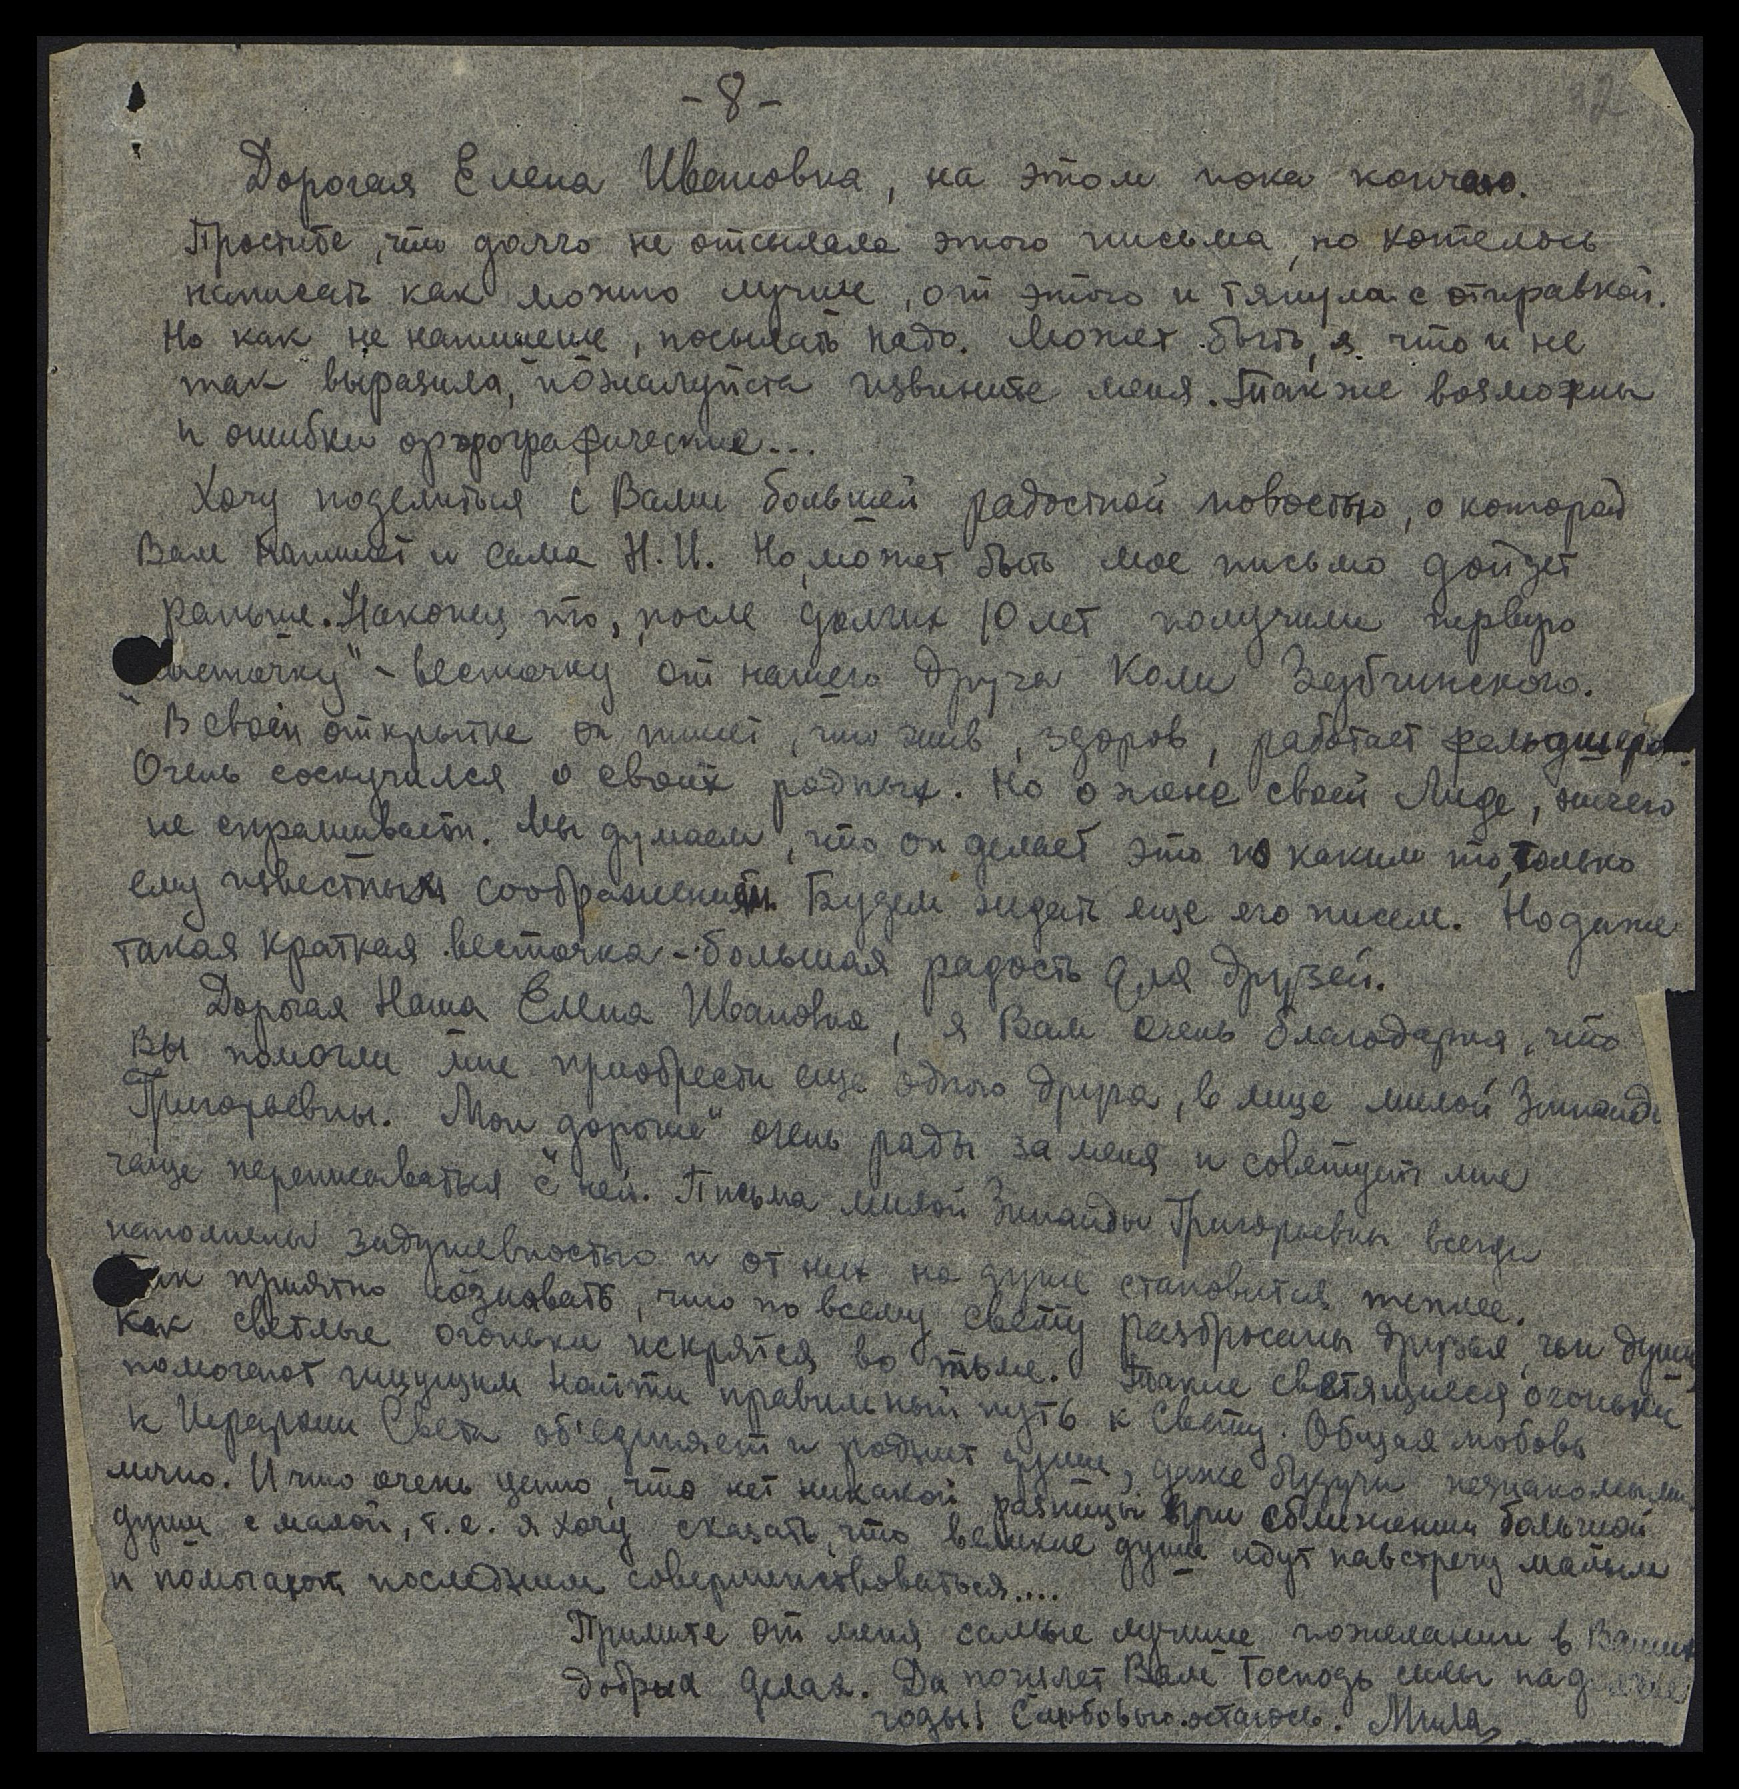 - 8 -
Дорогая Елена Ивановна, на этом пока кончаю.
Простите, что долго не отсылала этого письма, но хотелось
написать как можно лучше, от этого и тянула с отправкой.
Но как не напишешь, посылать надо. Может быть, я что и не
так выразила, пожалуйста извините меня. Также возможны
и ошибки орфографические...
Хочу поделиться с Вами большей радостной новостью, о которой
Вам напишет и сама Н.И. Но, может быть мое письмо дойдет
раньше. Наконец то, после долгих 10 лет получили первую
"ласточку" - весточку от нашего друга Коли Зубчинского.
В своей открытке он пишет, что жив, здоров, работает фельдшером.
Очень соскучился о своих родных. Но о жене своей Лиде, ничего
не спрашивает. Мы думаем, что он делает это по каким то, только
ему известным соображениям. Будем ждать еще его писем. Но даже
такая краткая весточка - большая радость для друзей.
Дорогая Наша Елена Ивановна, я Вам очень благодарна, что
Вы помогли мне приобрести еще одного друга, в лице милой Зинаиды
Григорьевны. Мои "дорогие" очень рады за меня и советуют мне
чаще переписываться с ней. Письма милой Зинаиды Григорьевны всегда
наполнены задушевностью и от них на душе становится теплее.
Так приятно сознавать, что по всему свету разбросаны друзья, чьи души,
как светлые огоньки искрятся во тьме. Такие светящиеся огоньки
помогают ищущим найти правильный путь к Свету. Общая любовь
к Иерархии Света об'единяет и роднит души, даже будучи незнакомыми
лично. И что очень ценно, что нет никакой разницы при сближении большой
души с малой, т.е. я хочу сказать, что великие души идут навстречу малым
и помогают последним совершенствоваться....
Примите от меня самые лучшие пожелания в Ваших
добрых делах. Да пошлет Вам Господь силы на долгие
годы! С любовью остаюсь. Мила